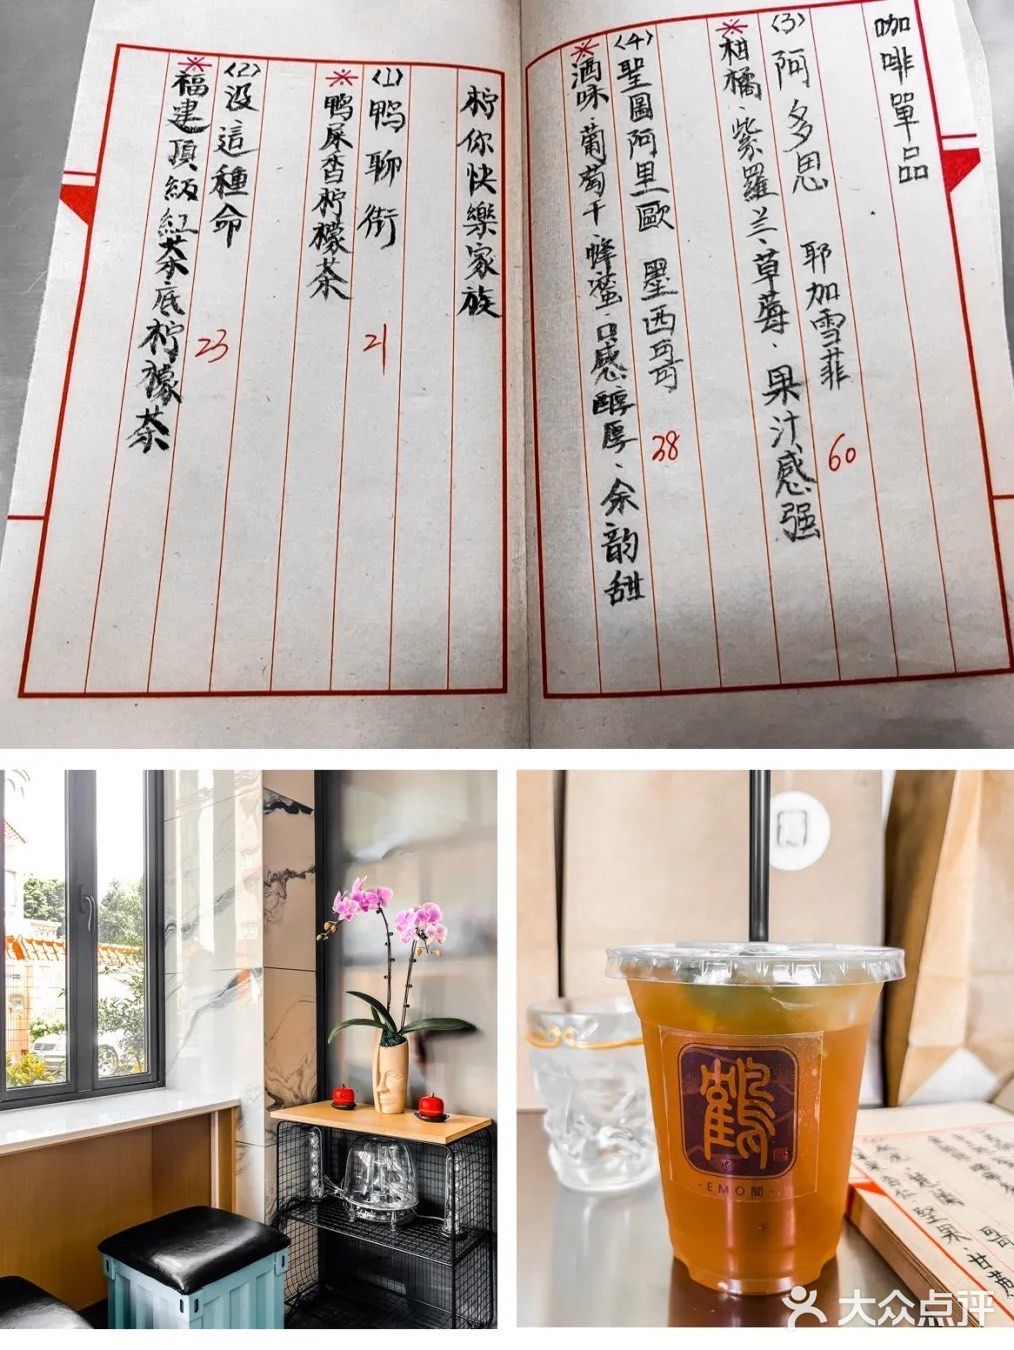 咖啡單品
(3) 阿多思 耶加雪菲 60
※柑橘、紫羅兰、草莓、果汁感强
(4) 聖圖阿里歐 墨西哥 38
※酒味、葡萄干、蜂蜜、口感醇厚、余韵甜
柠你快樂家族
(1) 鸭聊街 21
※鸭屎香柠檬茶
(2) 没這種命 23
※福建頂級紅茶底柠檬茶
鹤
·EMO間·
大众点评